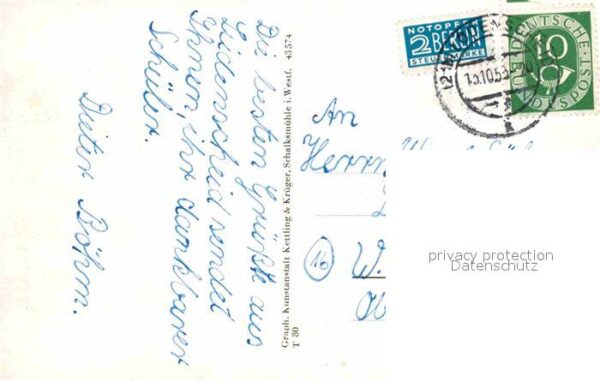 Die besten Grüße aus
Lüdenscheid sendet
Ihnen, ihr dankbarer
Schüler.
Dieter Böhm.
Graph. Kunstanstalt Kettling & Krüger, Schalksmühle i. Westf. 43574
T 80
NOTOPFER
2 BERLIN
STEUERMARKE
DEUTSCHE
10
BUNDESPOST
15.10.53
An
Herrn
16
W.
privacy protection
Datenschutz